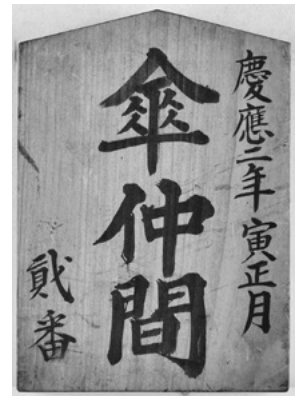 慶應二年 寅正月
傘仲間
貮番